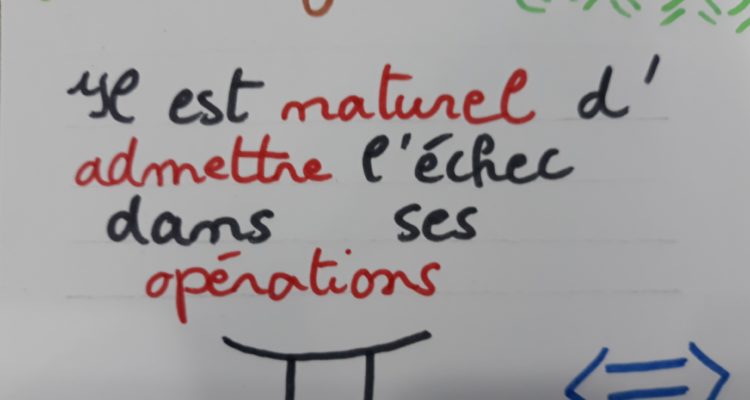 Il est naturel d'
admettre l'échec
dans ses
opérations